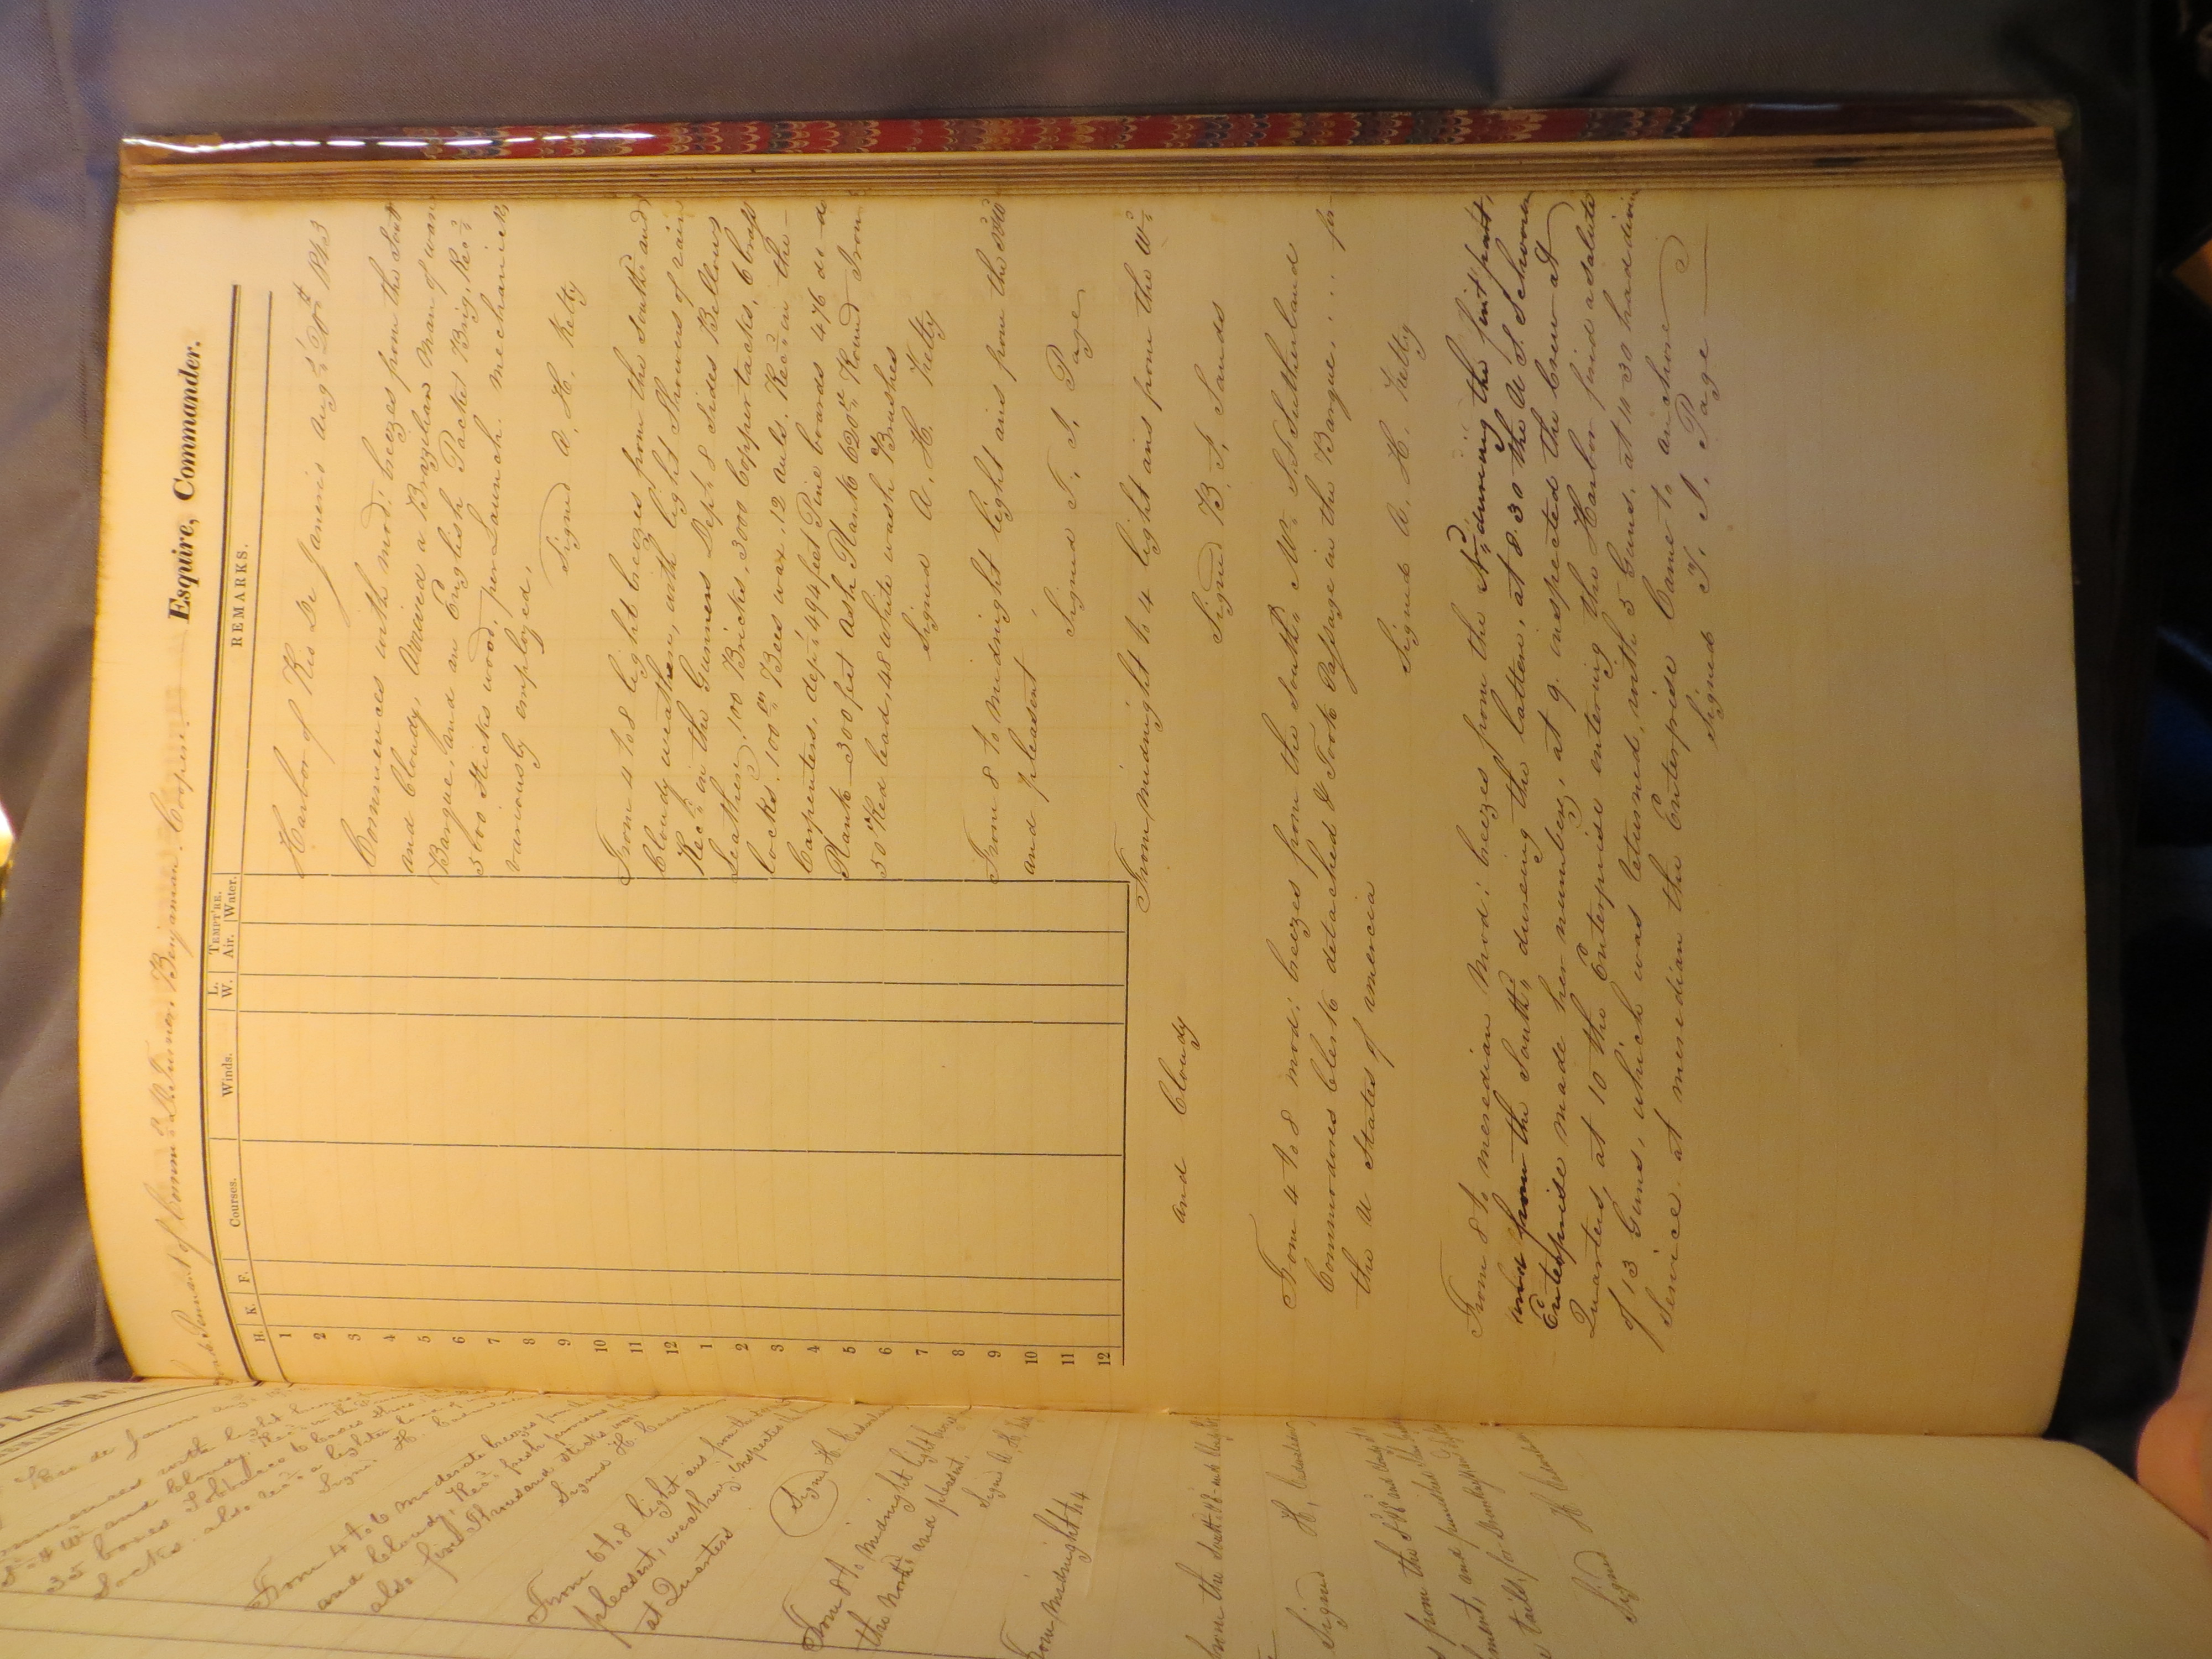 Pennant of Comm: D. Turner. Benjaman. Cooper. Esquire, Commander.
H. K. F. Courses. Winds. L. W. TEMPT'RE. Air. Water. REMARKS.
1
2
3
4
5
6
7
8
9
10
11
12
1
2
3
4
5
6
7
8
9
10
11
12
Harbor of Rio De Janeris Augst 20th 1843
Commences with mod: breezes from the Sout
and Cloudy, Arrived a Brazilian Man of war
Barque, and an English Packet Brig, Recd
5600 Sticks wood, per Launch. Mechanicks
variously employed,
Signed A. H. Kelty
From 4 to 8 light breezes from the South and
Cloudy weather, with light Showers of rain
Recd in the Gunners Dept 8 Sides Bellows
Leather, 100 Bricks, 3000 Copper tacks, 6 brass
locks, 100 lbs Bees wax, 12 auls. Recd in the
Carpenters, dept 494 feet Pine boards 476 do do
Plank 300 feet Ash Plank 620 lbs Round Iron
50 lbs Red lead, 48 White wash Brushes
Signed A. H. Kelty
From 8 to Midnight light airs from the
and pleasent
Signed T. J. Page
From Midnight to 4 light airs from the Wd
and Cloudy
Signed B. F. Sands
From 4 to 8 mod: breezes from the Southd Mr. Sutherland
Commodores Clerk detached & Took Passage in the Barque for
the U States of america
Signed A. H. Kelty
From 8 to meredian Mod: breezes from the Nd during the first part,
and from the Southd dureing the latter, at 8.30 the U S. Schooner
Enterprise made her number, at 9. inspected the Crew at
Quarters at 10 the Enterprise entering the Harbor fired a salute
of 13 Guns, which was returned, with 5 Guns, at 10-30 had divine
Service. at meredian the Enterprise Came to anchor
Signed T. J. Page
From 4 to 6 moderate breezes
and cloudy, Recd fresh
also five Thousand sticks
From 6 to 8 light airs
pleasent, weather, inspected
at Quarters
From 8 to Midnight light
the Nord and pleasent,
From Midnight to 4
from the
Signed H.
Signed H